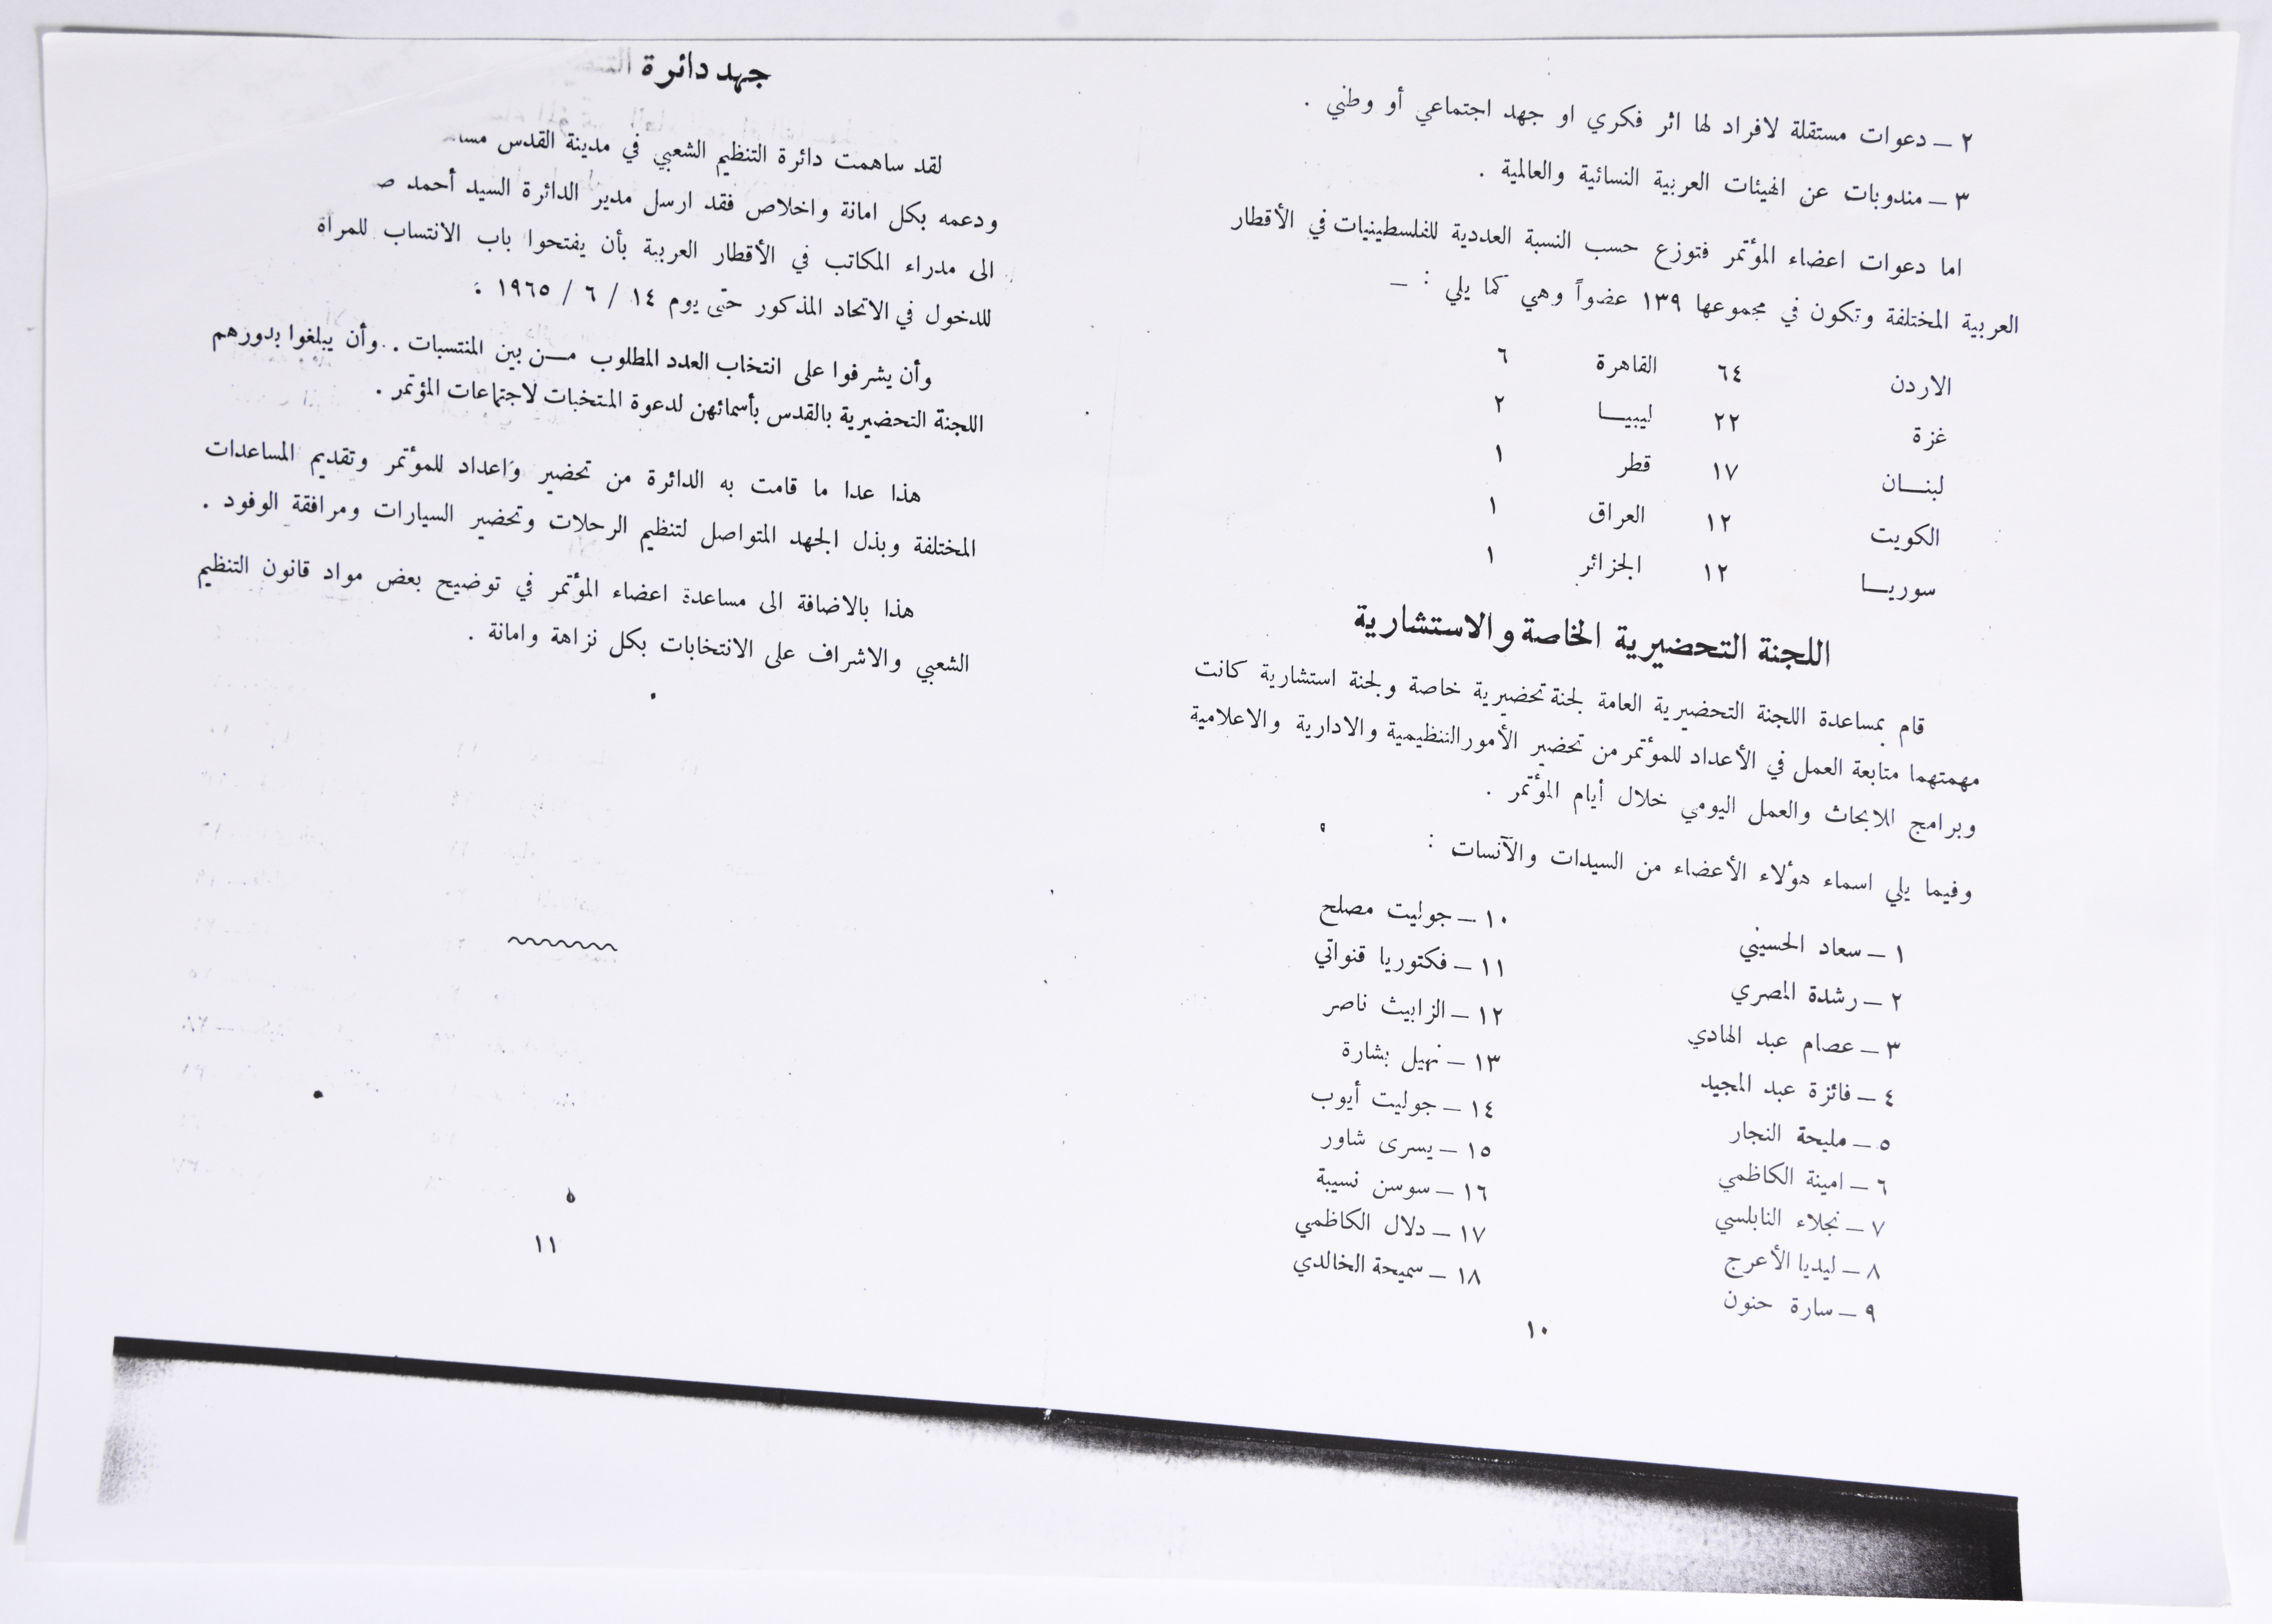 ٢ – دعوات مستقلة لافراد لها اثر فكري او جهد اجتماعي أو وطني .
٣ – مندوبات عن الهيئات العربية النسائية والعالمية .
اما دعوات اعضاء المؤتمر فتوزع حسب النسبة العددية للفلسطينيات في الأقطار
العربية المختلفة وتكون في مجموعها ١٣٩ عضواً وهي كما يلي : –
الاردن ٦٤ القاهرة ٦
غزة ٢٢ ليبيـــا ٢
لبنـــان ١٧ قطر ١
الكويت ١٢ العراق ١
سوريـــا ١٢ الجزائر ١
اللجنة التحضيرية الخاصة والاستشارية
قام بمساعدة اللجنة التحضيرية العامة لجنة تحضيرية خاصة ولجنة استشارية كانت
مهمتهما متابعة العمل في الأعداد للمؤتمر من تحضير الأمور التنظيمية والادارية والاعلامية
وبرامج الابحاث والعمل اليومي خلال أيام المؤتمر .
وفيما يلي اسماء هؤلاء الأعضاء من السيدات والآنسات :
١ – سعاد الحسيني
٢ – رشدة المصري
٣ – عصام عبد الهادي
٤ – فائزة عبد المجيد
٥ – مليحة النجار
٦ – امينة الكاظمي
٧ – نجلاء النابلسي
٨ – ليديا الأعرج
٩ – سارة حنون
١٠ – جوليت مصلح
١١ – فكتوريا قنواتي
١٢ – الزابيث ناصر
١٣ – نهيل بشارة
١٤ – جوليت أيوب
١٥ – يسرى شاور
١٦ – سوسن نسيبة
١٧ – دلال الكاظمي
١٨ – سميحة الخالدي
١٠
جهد دائرة
لقد ساهمت دائرة التنظيم الشعبي في مدينة القدس
ودعمه بكل امانة واخلاص فقد ارسل مدير الدائرة السيد أحمد
الى مدراء المكاتب في الأقطار العربية بأن يفتحوا باب الانتساب للمرأة
للدخول في الاتحاد المذكور حتى يوم ١٤ / ٦ / ١٩٦٥ :
وأن يشرفوا على انتخاب العدد المطلوب مــن بين المنتسبات . وأن يبلغوا بدورهم
اللجنة التحضيرية بالقدس بأسمائهن لدعوة المتخبات لاجتماعات المؤتمر .
هذا عدا ما قامت به الدائرة من تحضير واعداد للمؤتمر وتقديم المساعدات
المختلفة وبذل الجهد المتواصل لتنظيم الرحلات وتحضير السيارات ومرافقة الوفود .
هذا بالاضافة الى مساعدة اعضاء المؤتمر في توضيح بعض مواد قانون التنظيم
الشعبي والاشراف على الانتخابات بكل نزاهة وامانة .
١١